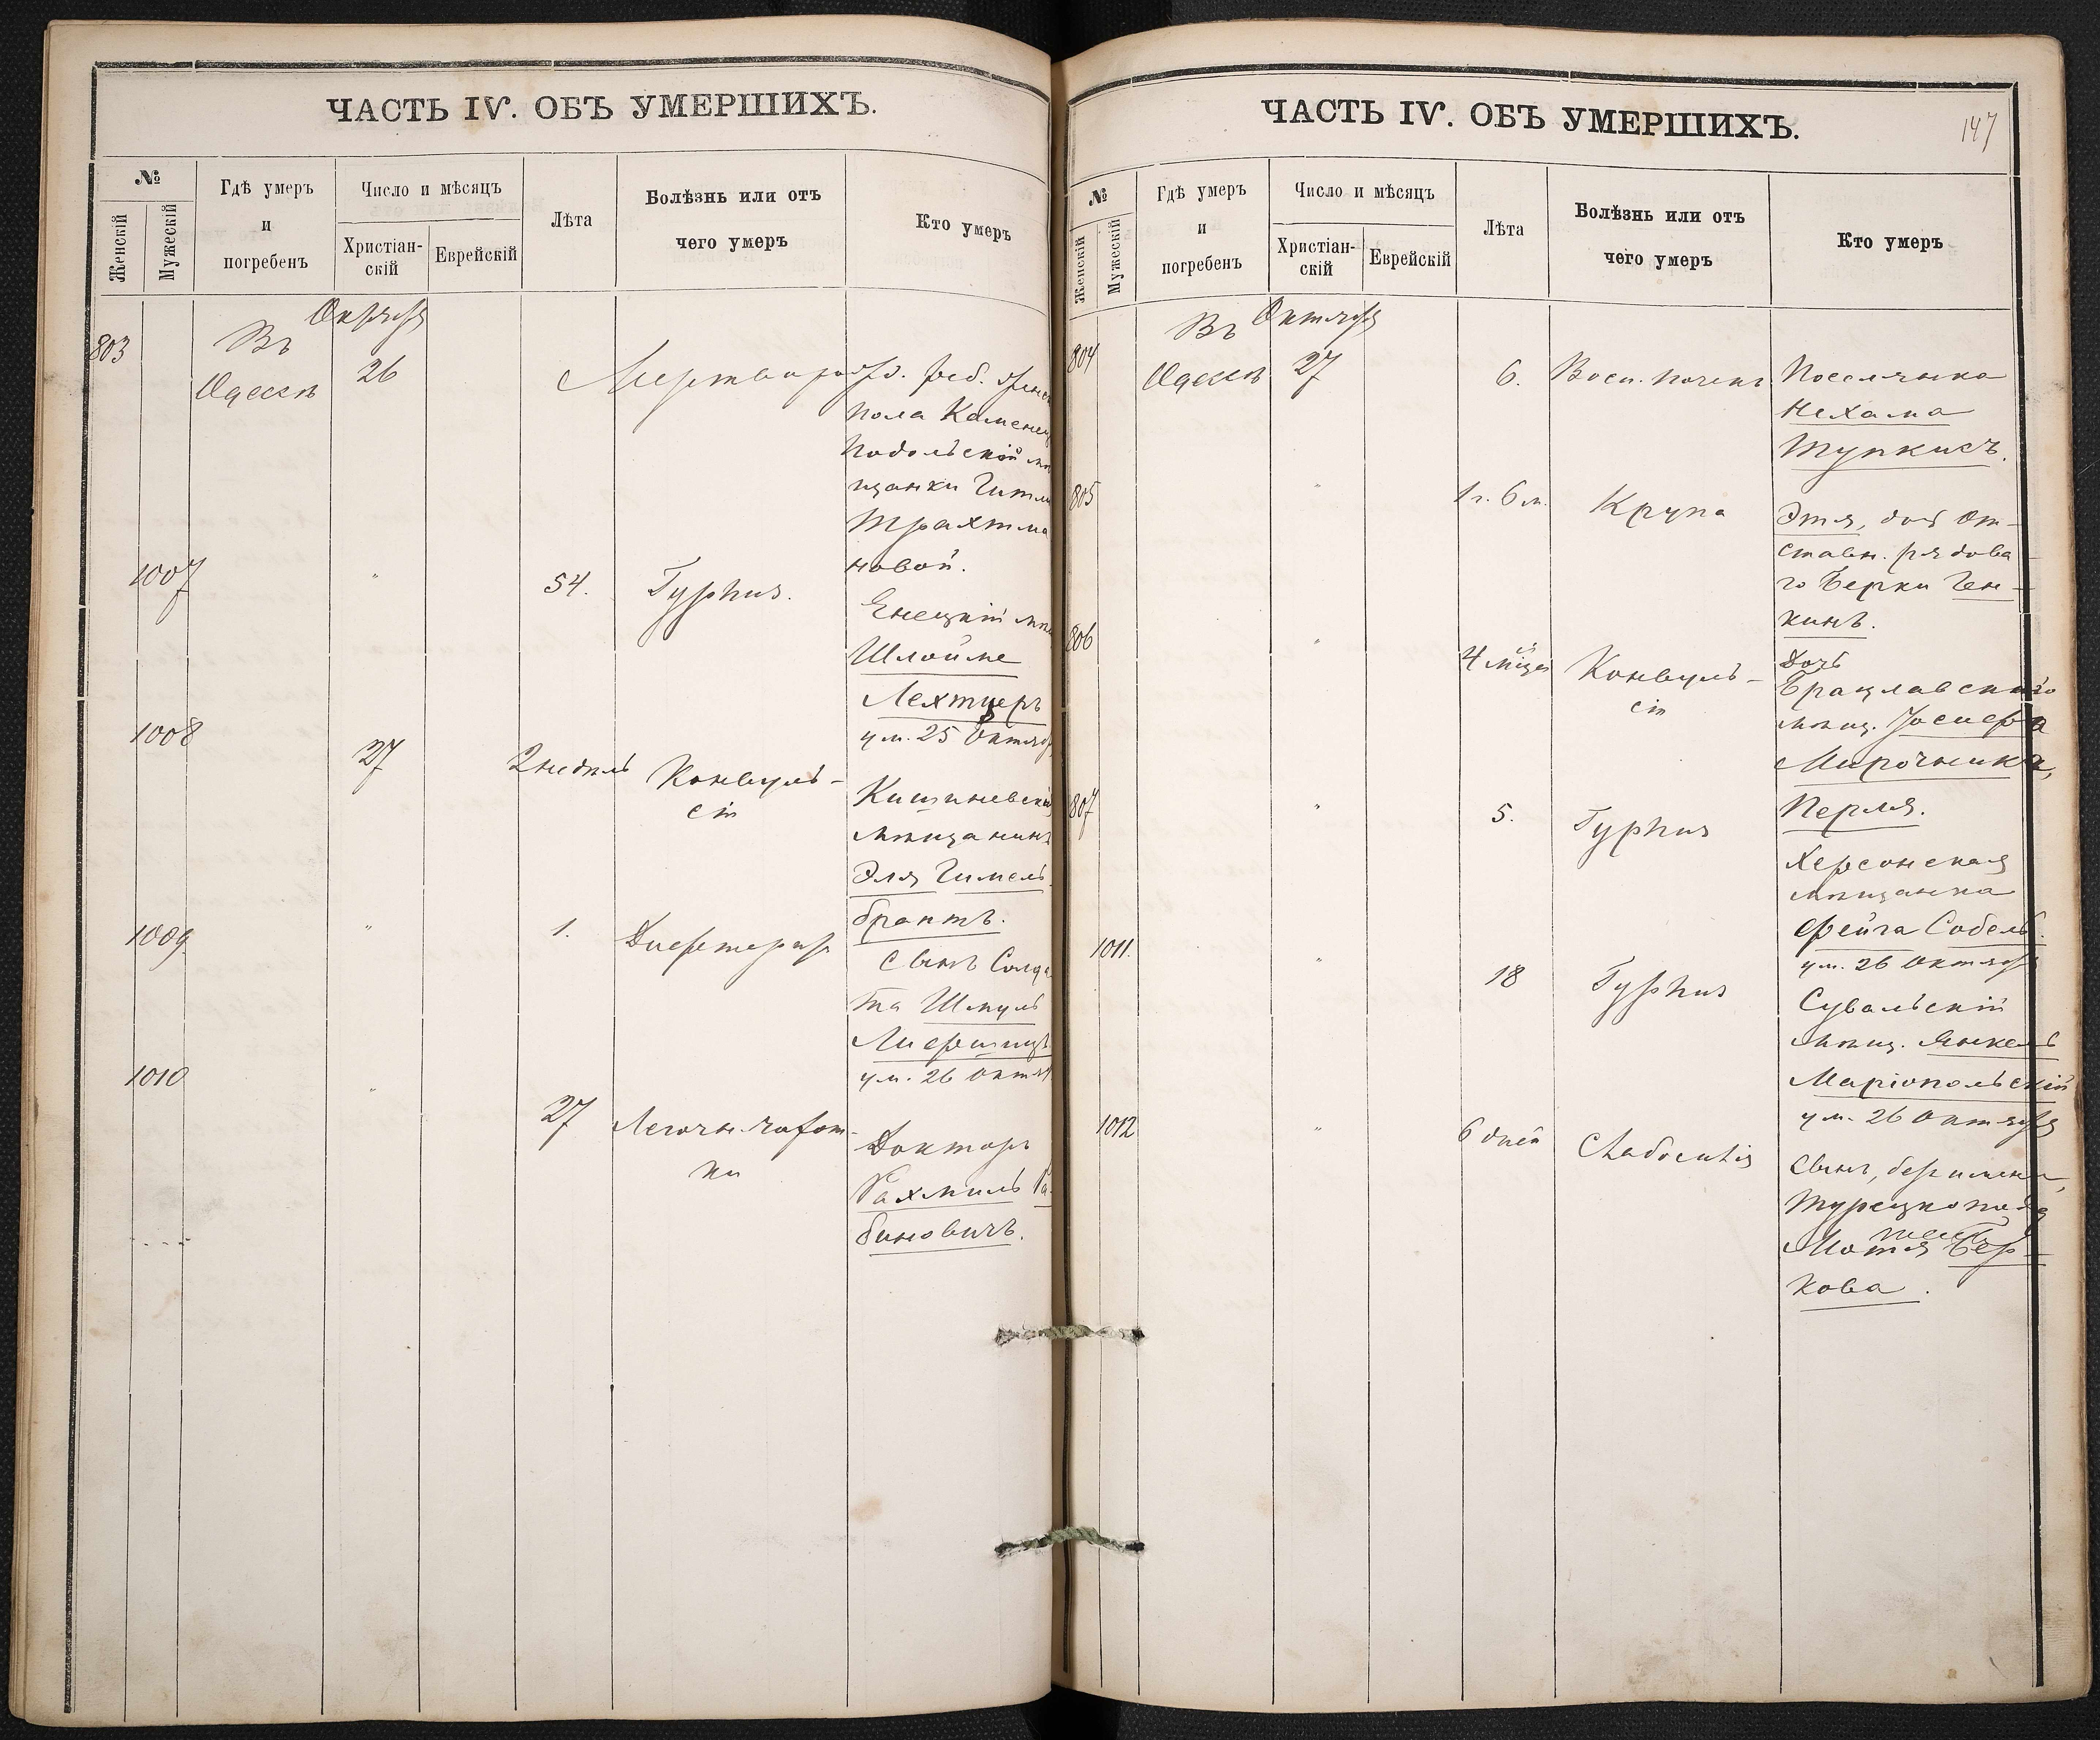 ЧАСТЬ IV. ОБЪ УМЕРШИХЪ.
№
Женскій
Мужескій
Гдѣ умеръ
и
погребенъ
Число и мѣсяцъ
Христіан-
скій
Еврейскій
Лѣта
Болѣзнь или отъ
чего умеръ
Кто умеръ
Октября
803
Въ
Одессѣ
26
Мертворожд. реб. женск
пола Каменец
Подольской мѣ
щанки Гитли
Трахтма
новой.
1007
"
54.
Typhus.
Енецкій мѣщ
Шлойме
Лехтцеръ
ум. 25 Октяб
1008
27
2 недѣль
Конвуль-
сіи
Кишиневскій
мѣщанинъ
Эля Гимель-
брантъ.
1009.
"
1.
Дифтеритъ
Сынъ Солда
та Шмуль
Лифшицъ
ум. 26 Октяб
1010
"
27
Легочн. чахот-
ки
Докторъ
Рахмиль Ра-
биновичъ.
ЧАСТЬ IV. ОБЪ УМЕРШИХЪ.
147
№
Женскій
Мужескій
Гдѣ умеръ
и
погребенъ
Число и мѣсяцъ
Христіан-
скій
Еврейскій
Лѣта
Болѣзнь или отъ
чего умеръ
Кто умеръ
Октября
804
Въ
Одессѣ
27
6.
Восп. почекъ
Поселянка
Нехама
Тупкисъ.
805
"
1 г. 6 м.
Крупа
Этя, дочь От-
ставн. рядова-
го Берки Ген-
кинъ.
806
"
4 мѣсяц
Конвуль-
сіи
Дочь
Брацлавскаго
мѣщ. Іосифа
Мирочника,
Перля.
807
"
5.
Typhus
Херсонская
мѣщанка
Фейга Собель.
ум. 26 Октября
1011.
"
18
Typhus
Сувальскій
мѣщ. Янкель
Маріопольскій
ум. 26 Октября
1012
"
6 дней
Слабостія
Сынъ, безъ имени,
Турецкопод
Мотя Бер-
кова.